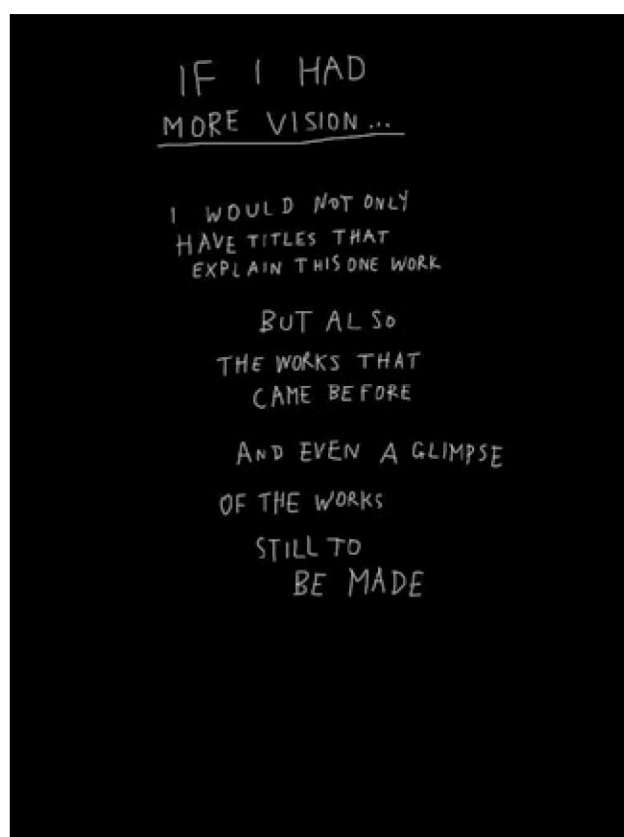 IF I HAD
MORE VISION...
I WOULD NOT ONLY
HAVE TITLES THAT
EXPLAIN THIS ONE WORK
BUT ALSO
THE WORKS THAT
CAME BEFORE
AND EVEN A GLIMPSE
OF THE WORKS
STILL TO
BE MADE